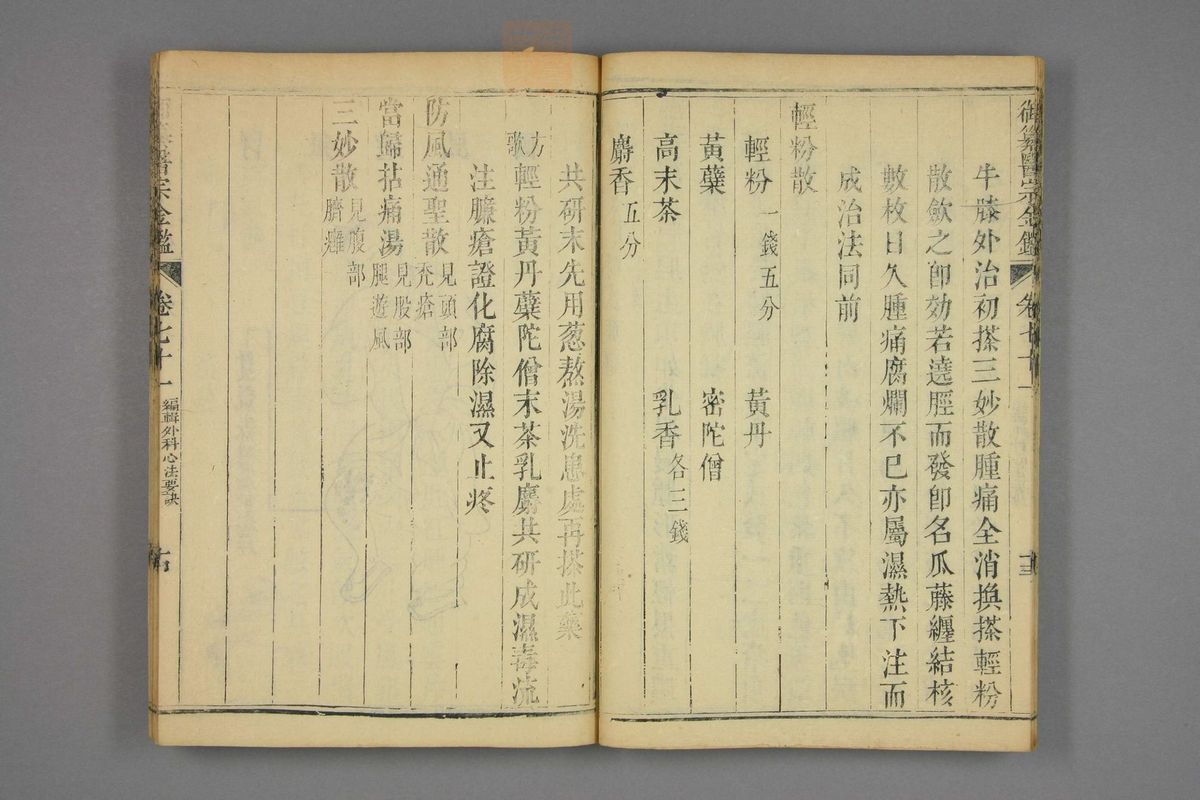 御纂醫宗金鑑 卷七十一 十三
牛膝外治初搽三妙散腫痛全消換搽輕粉
散歛之卽効若遶脛而發卽名瓜藤纏結核
數枚日久腫痛腐爛不已亦屬濕熱下注而
成治法同前
輕粉散
輕粉一錢五分 黃丹
黃蘗 密陀僧
高末茶 乳香各三錢
麝香五分
共研末先用葱熬湯洗患處再搽此藥
方歌 輕粉黃丹蘗陀僧末茶乳麝共研成濕毒流
注臁瘡證化腐除濕又止疼
防風通聖散見頭部禿瘡
當歸拈痛湯見股部腿遊風
三妙散見腹部臍癰
醫宗金鑑 卷七十一 編輯外科心法要訣 十四